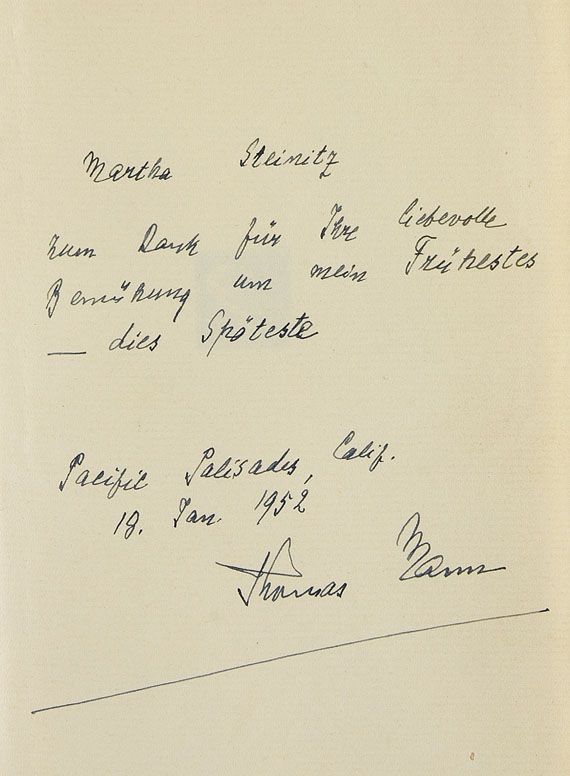 Martha Steinitz
zum Dank für Ihre liebevolle
Bemühung um mein Frühestes
— dies Späteste
Pacific Palisades, Calif.
18. Jan. 1952
Thomas Mann